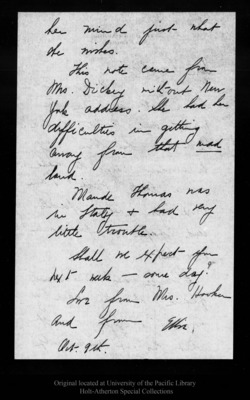 her mind just what
she wishes.
This note came from
Mrs. Dickey without New
York address. She had her
difficulties in getting
away from that mad
land.
Maude Thomas was
in Italy & had very
little trouble.
Shall we expect you
next week – some day?
Love from Mrs. Hooker
and from
Oct. 9th.
Original located at University of the Pacific Library
Holt-Atherton Special Collections